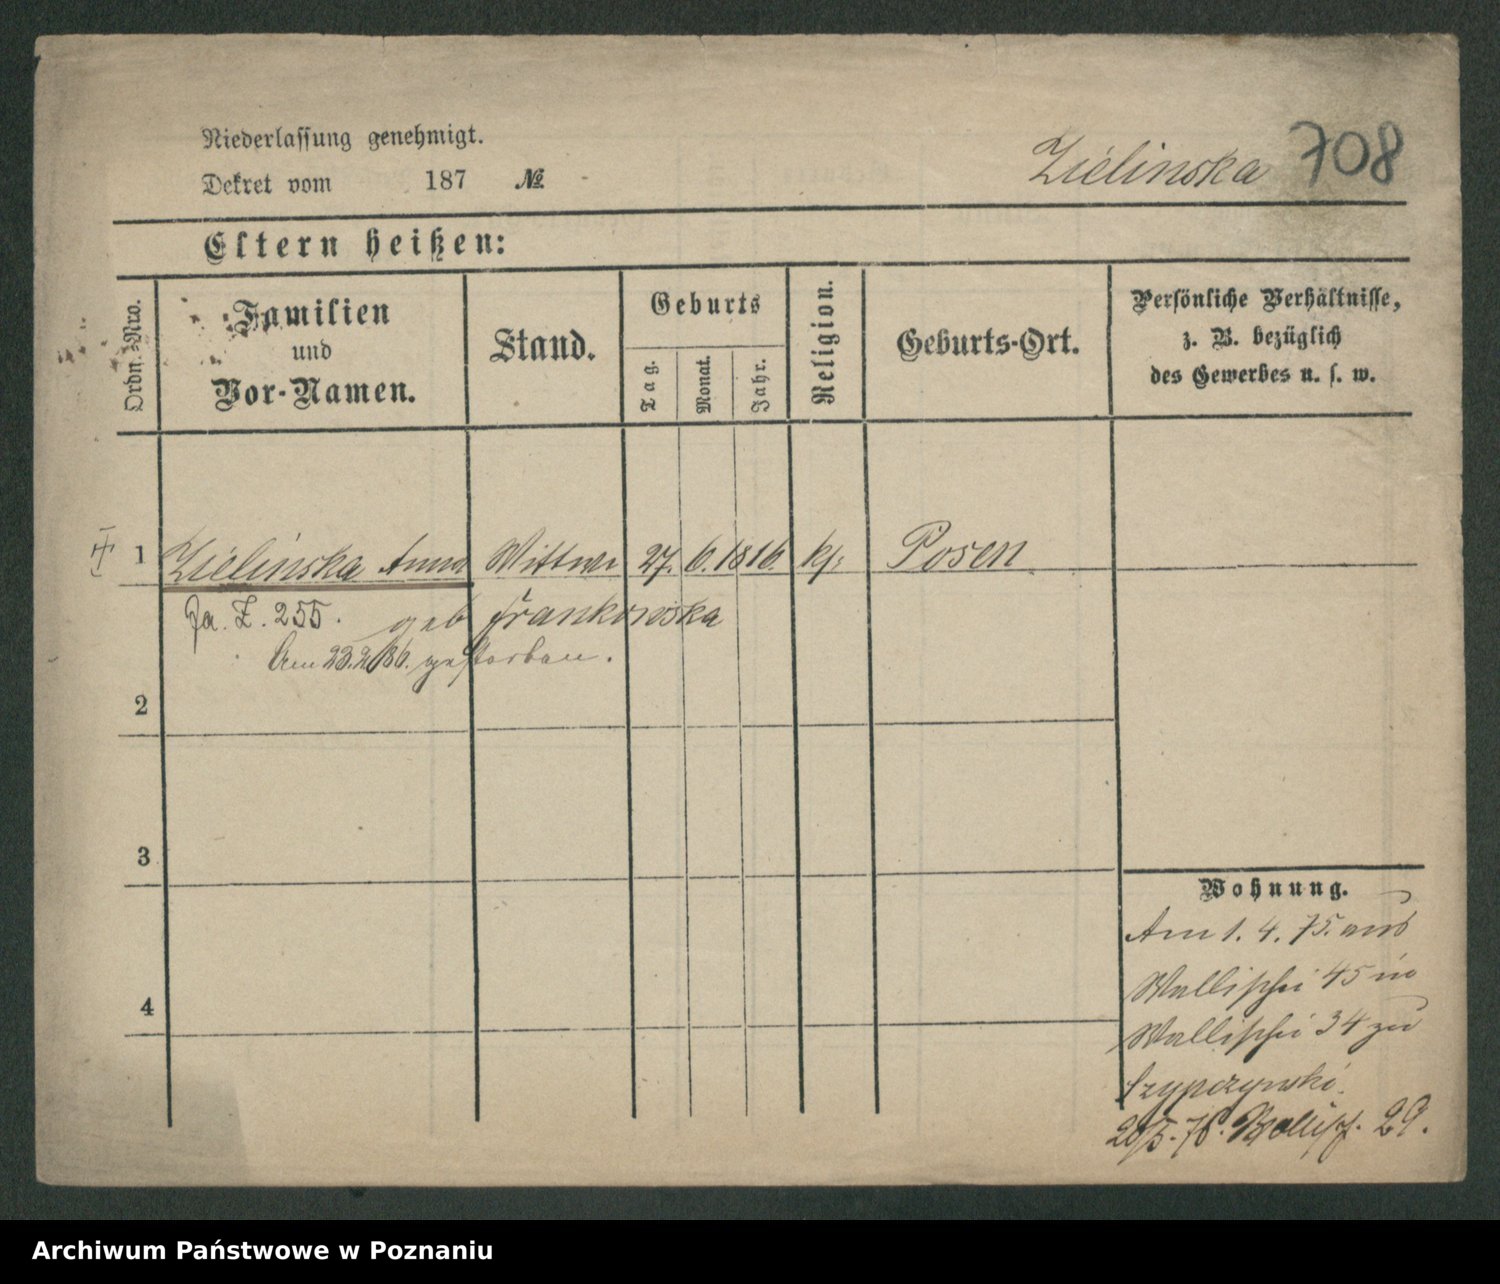 Niederlassung genehmigt.
Dekret vom 187 № Zielinska 708
Eltern heißen:
Ordn.-Nro.
Familien
und
Vor-Namen.
Stand.
Geburts
Tag.
Monat.
Jahr.
Religion.
Geburts-Ort.
Persönliche Verhältnisse,
z. B. bezüglich
des Gewerbes u. s. w.
1 Zielinska Anna Wittwe 27. 6. 1816. Posen
Z. 255. geb Frankowska
Am 23.2.86. gestorben.
2
3
4
Wohnung.
Am 1. 4. 75. aus
Wallischei 45 in
Wallischei 34 zu
Szypczynski.
20/5. 76. Wallisch. 29.
Archiwum Państwowe w Poznaniu